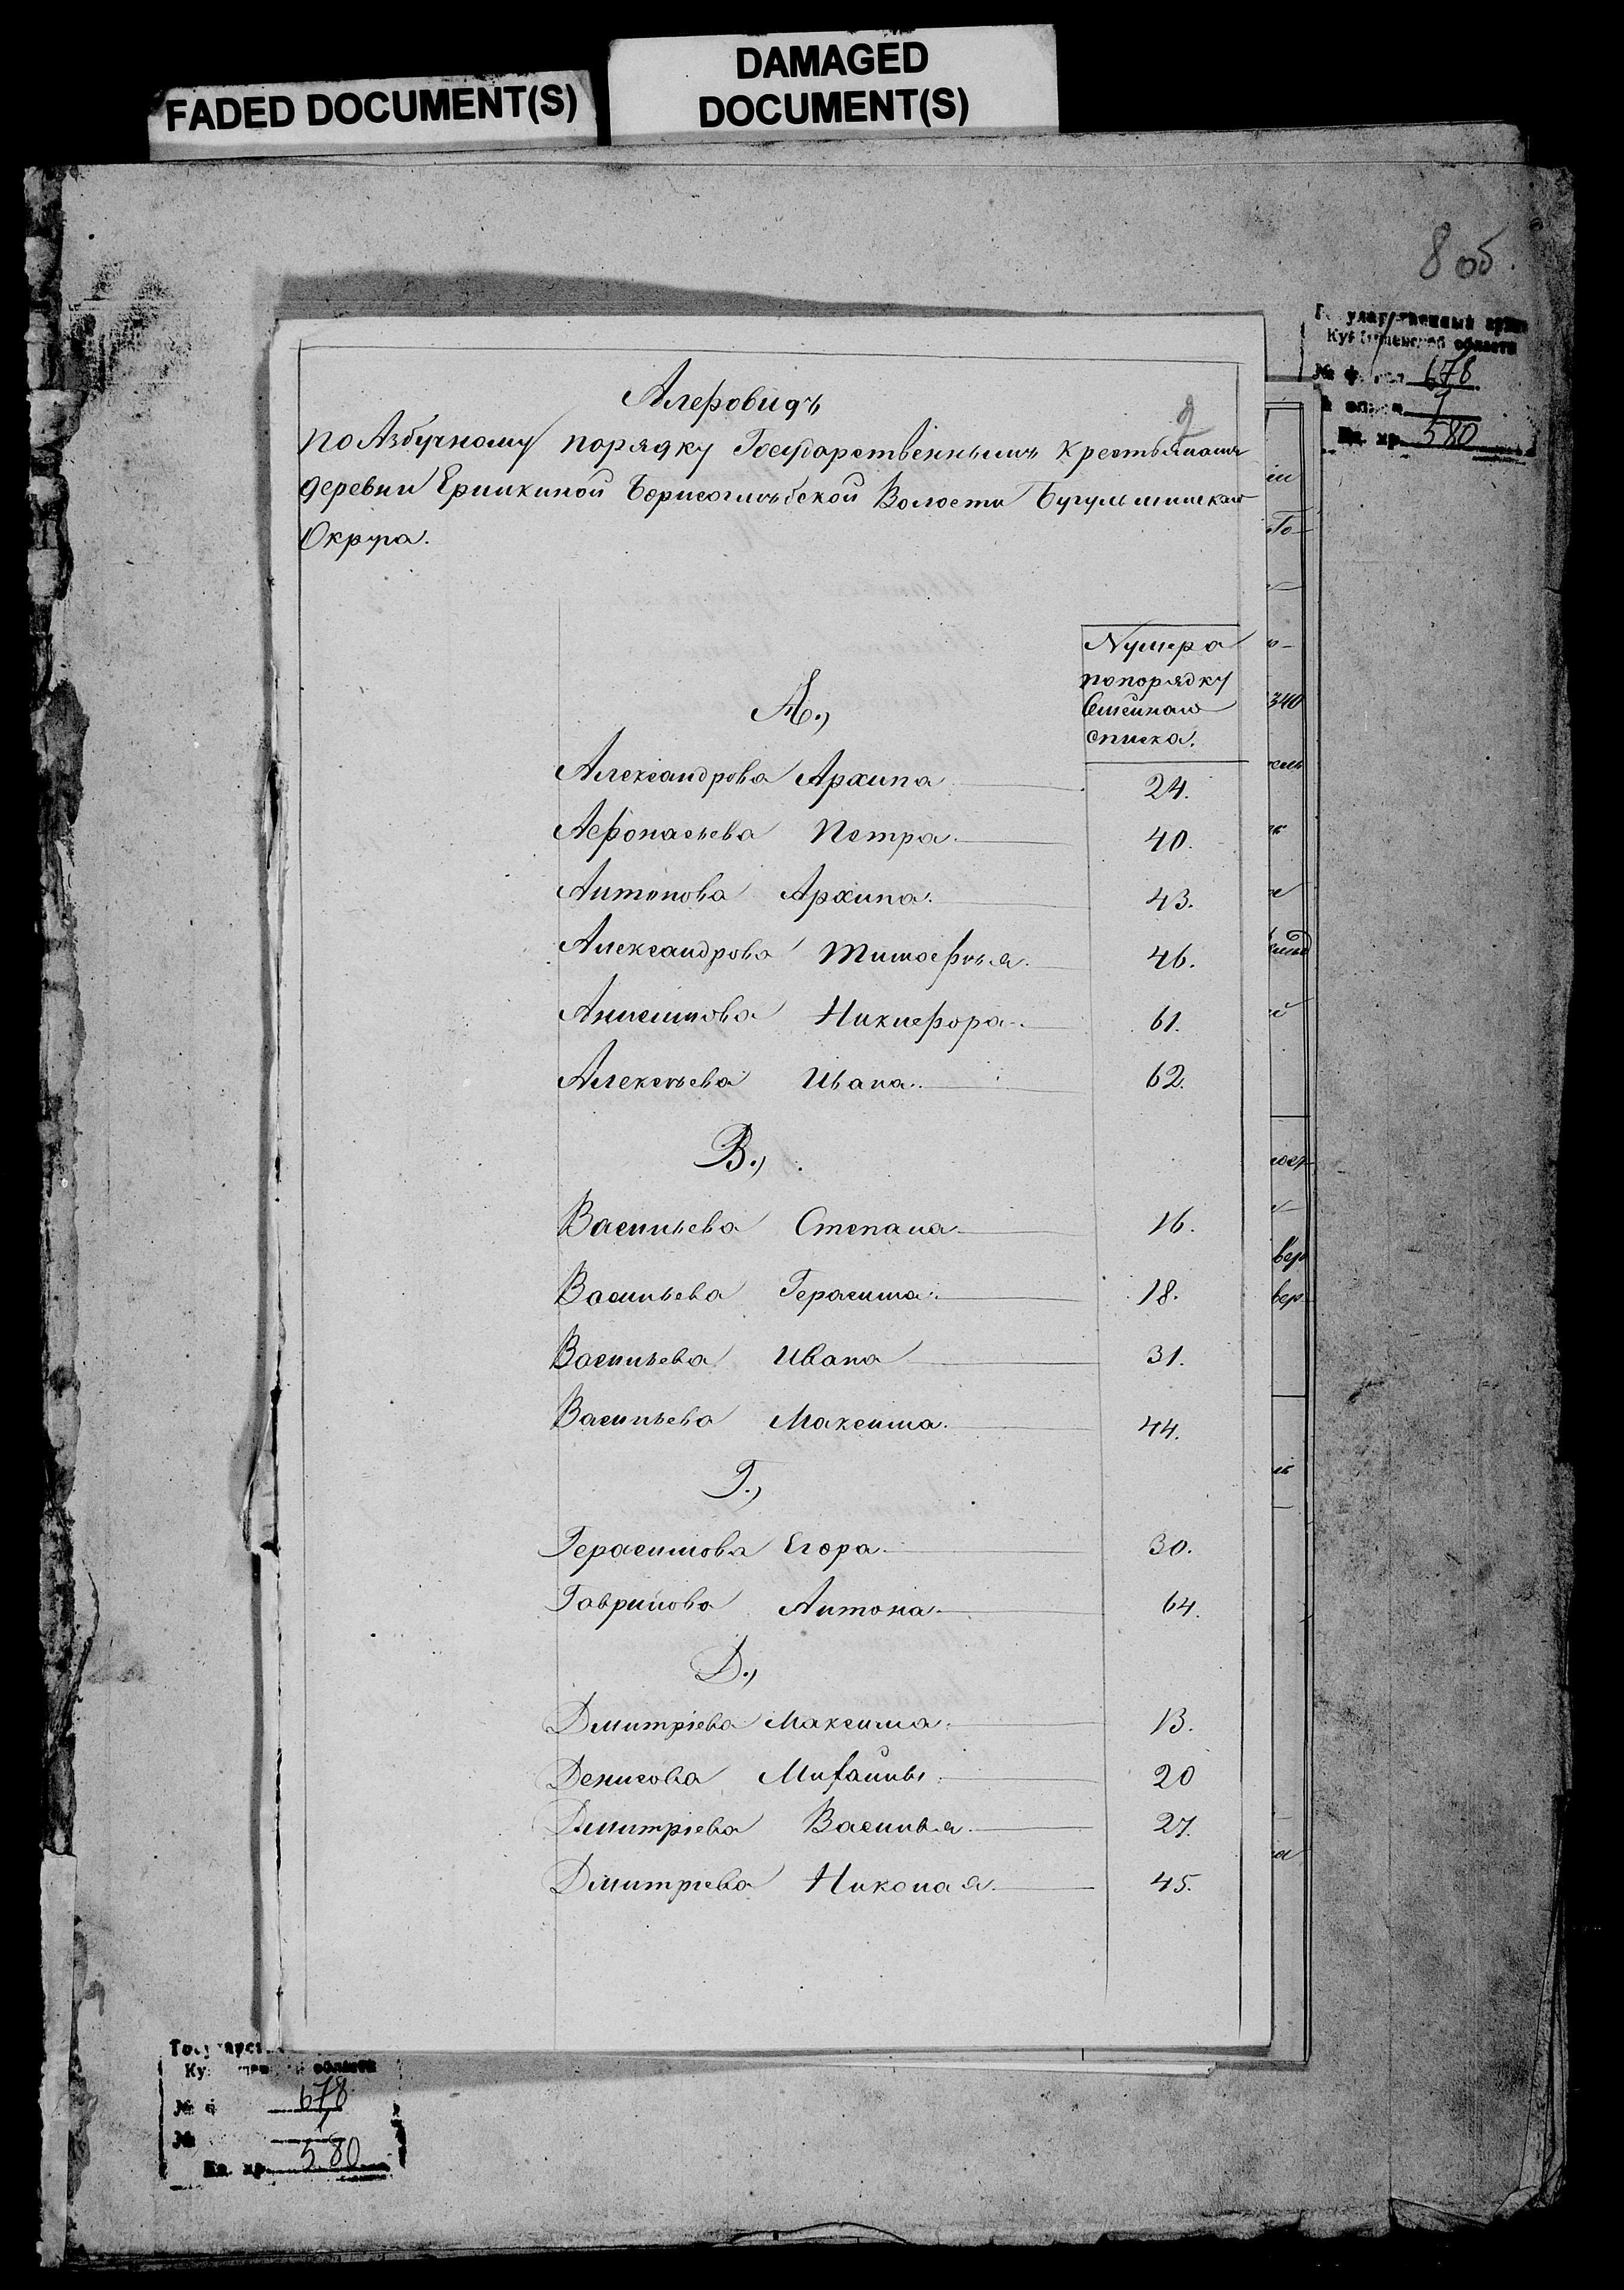 FADED DOCUMENT(S)
DAMAGED
DOCUMENT(S)
8 об.
678
1
580
Алфовидъ
2
по Азбучному порядку Государственнымъ крестьянамъ
деревни Ерилкиной Борисоглѣбской Волости Бугульминскаго
Округа.
Нумера
по порядку
Семейнаго
списка.
А.,
Александрова Архипа 24.
Афонасьева Петра 40.
Антонова Архипа. 43.
Александрова Тимофѣя. 46.
Анисимова Никифора. 61.
Алексѣева Ивана. 62.
В.,
Васильева Степана 16.
Васильева Герасима. 18.
Васильева Ивана 31.
Васильева Максима. 44.
Г.,
Герасимова Егора. 30.
Гаврилова Антона. 64.
Д.,
Дмитріева Максима. 13.
Денисова Михайлы. 20
Дмитріева Василья. 27.
Дмитріева Николая. 45.
340
вер
вер
678
580